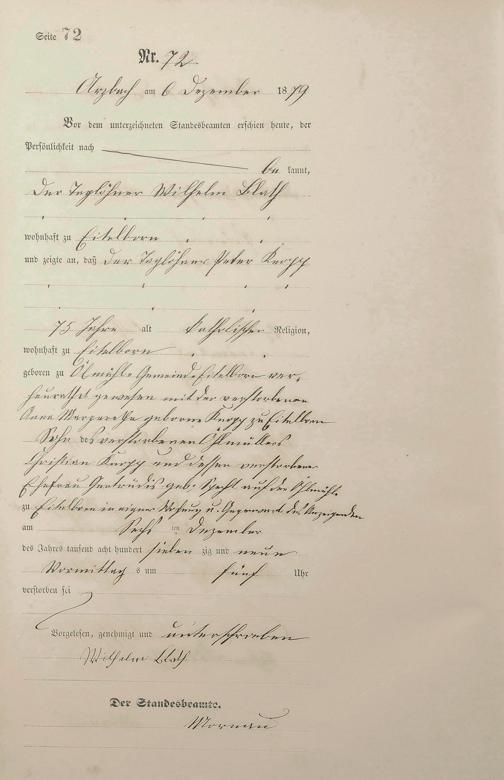 Seite 72
Nr. 72
Arzbach am 6 Dezember 1879
Vor dem unterzeichneten Standesbeamten erschien heute, der
Persönlichkeit nach
be kannt,
der Taglöhner Wilhelm Blath
wohnhaft zu Eitelborn
und zeigte an, daß der Taglöhner Peter Knopp
75 Jahre alt katholischer Religion,
wohnhaft zu Eitelborn
geboren zu Ölmühle Gemeinde Eitelborn ver-
heurathet gewesen mit der verstorbenen
Anna Margaretha geborene Knopp zu Eitelborn
Sohn des verstorbenen Öhlmüllers
Christian Knopp und dessen verstorbene
Ehefrau Gertrudis geb. auf der Ohlmühle
zu Eitelborn in eigner Wohnung u. Gegenwart des Anzeigenden
am Sechs ten Dezember
des Jahres tausend acht hundert sieben zig und neun
Vormittag s um fünf Uhr
verstorben sei
Vorgelesen, genehmigt und unterschrieben
Wilhelm Blath
Der Standesbeamte.